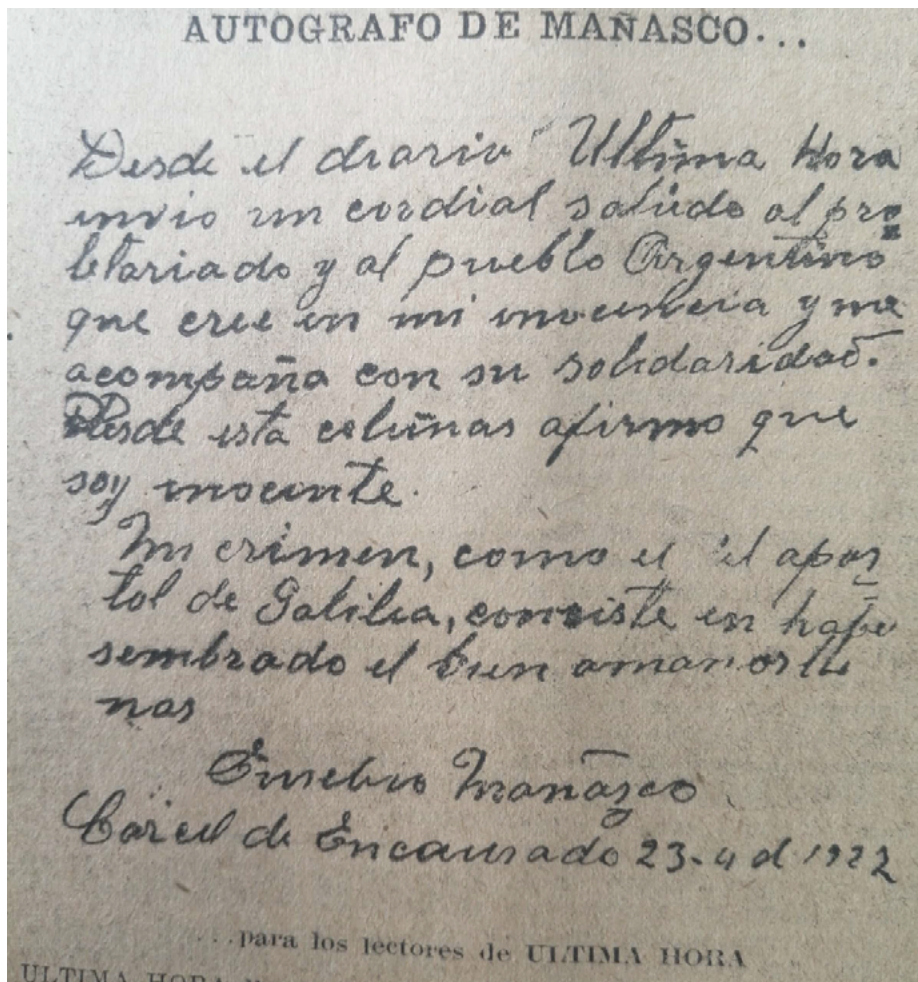 AUTOGRAFO DE MAÑASCO...
Desde el diario Ultima Hora
envio un cordial saludo al pro
letariado y al pueblo Argentino
que cree en mi inocencia y me
acompaña con su solidaridad.
Desde esta coluñas afirmo que
soy inocente.
Mi crimen, como el el apos
tol de Galilea, consiste en habe
sembrado el bien a manos
nas
Eusebio Mañasco
Carcel de Encausado 23-4 d 1922
...para los lectores de ULTIMA HORA
ULTIMA HORA